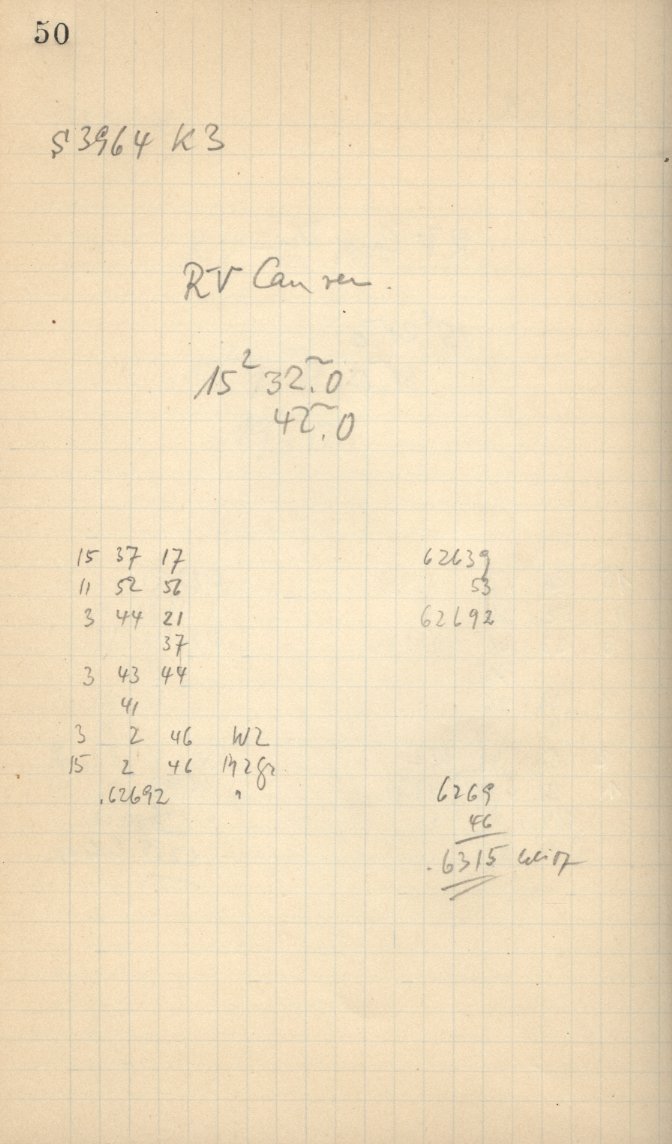 50
S 3964 K3
RV Can ven.
15 2 32.0
42.0
15 37 17
11 52 56
3 44 21
37
3 43 44
41
3 2 46 WZ
15 2 46 MZGr
.62692 "
62639
53
62692
6269
46
.6315